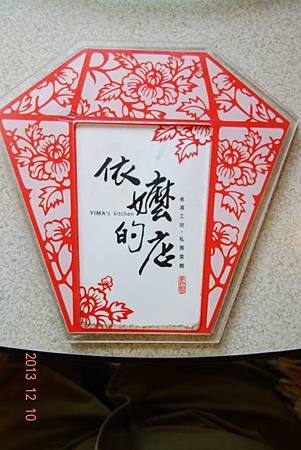 依嬤的店
YIMA's kitchen
老酒工坊・私房菜館
2013 12 10